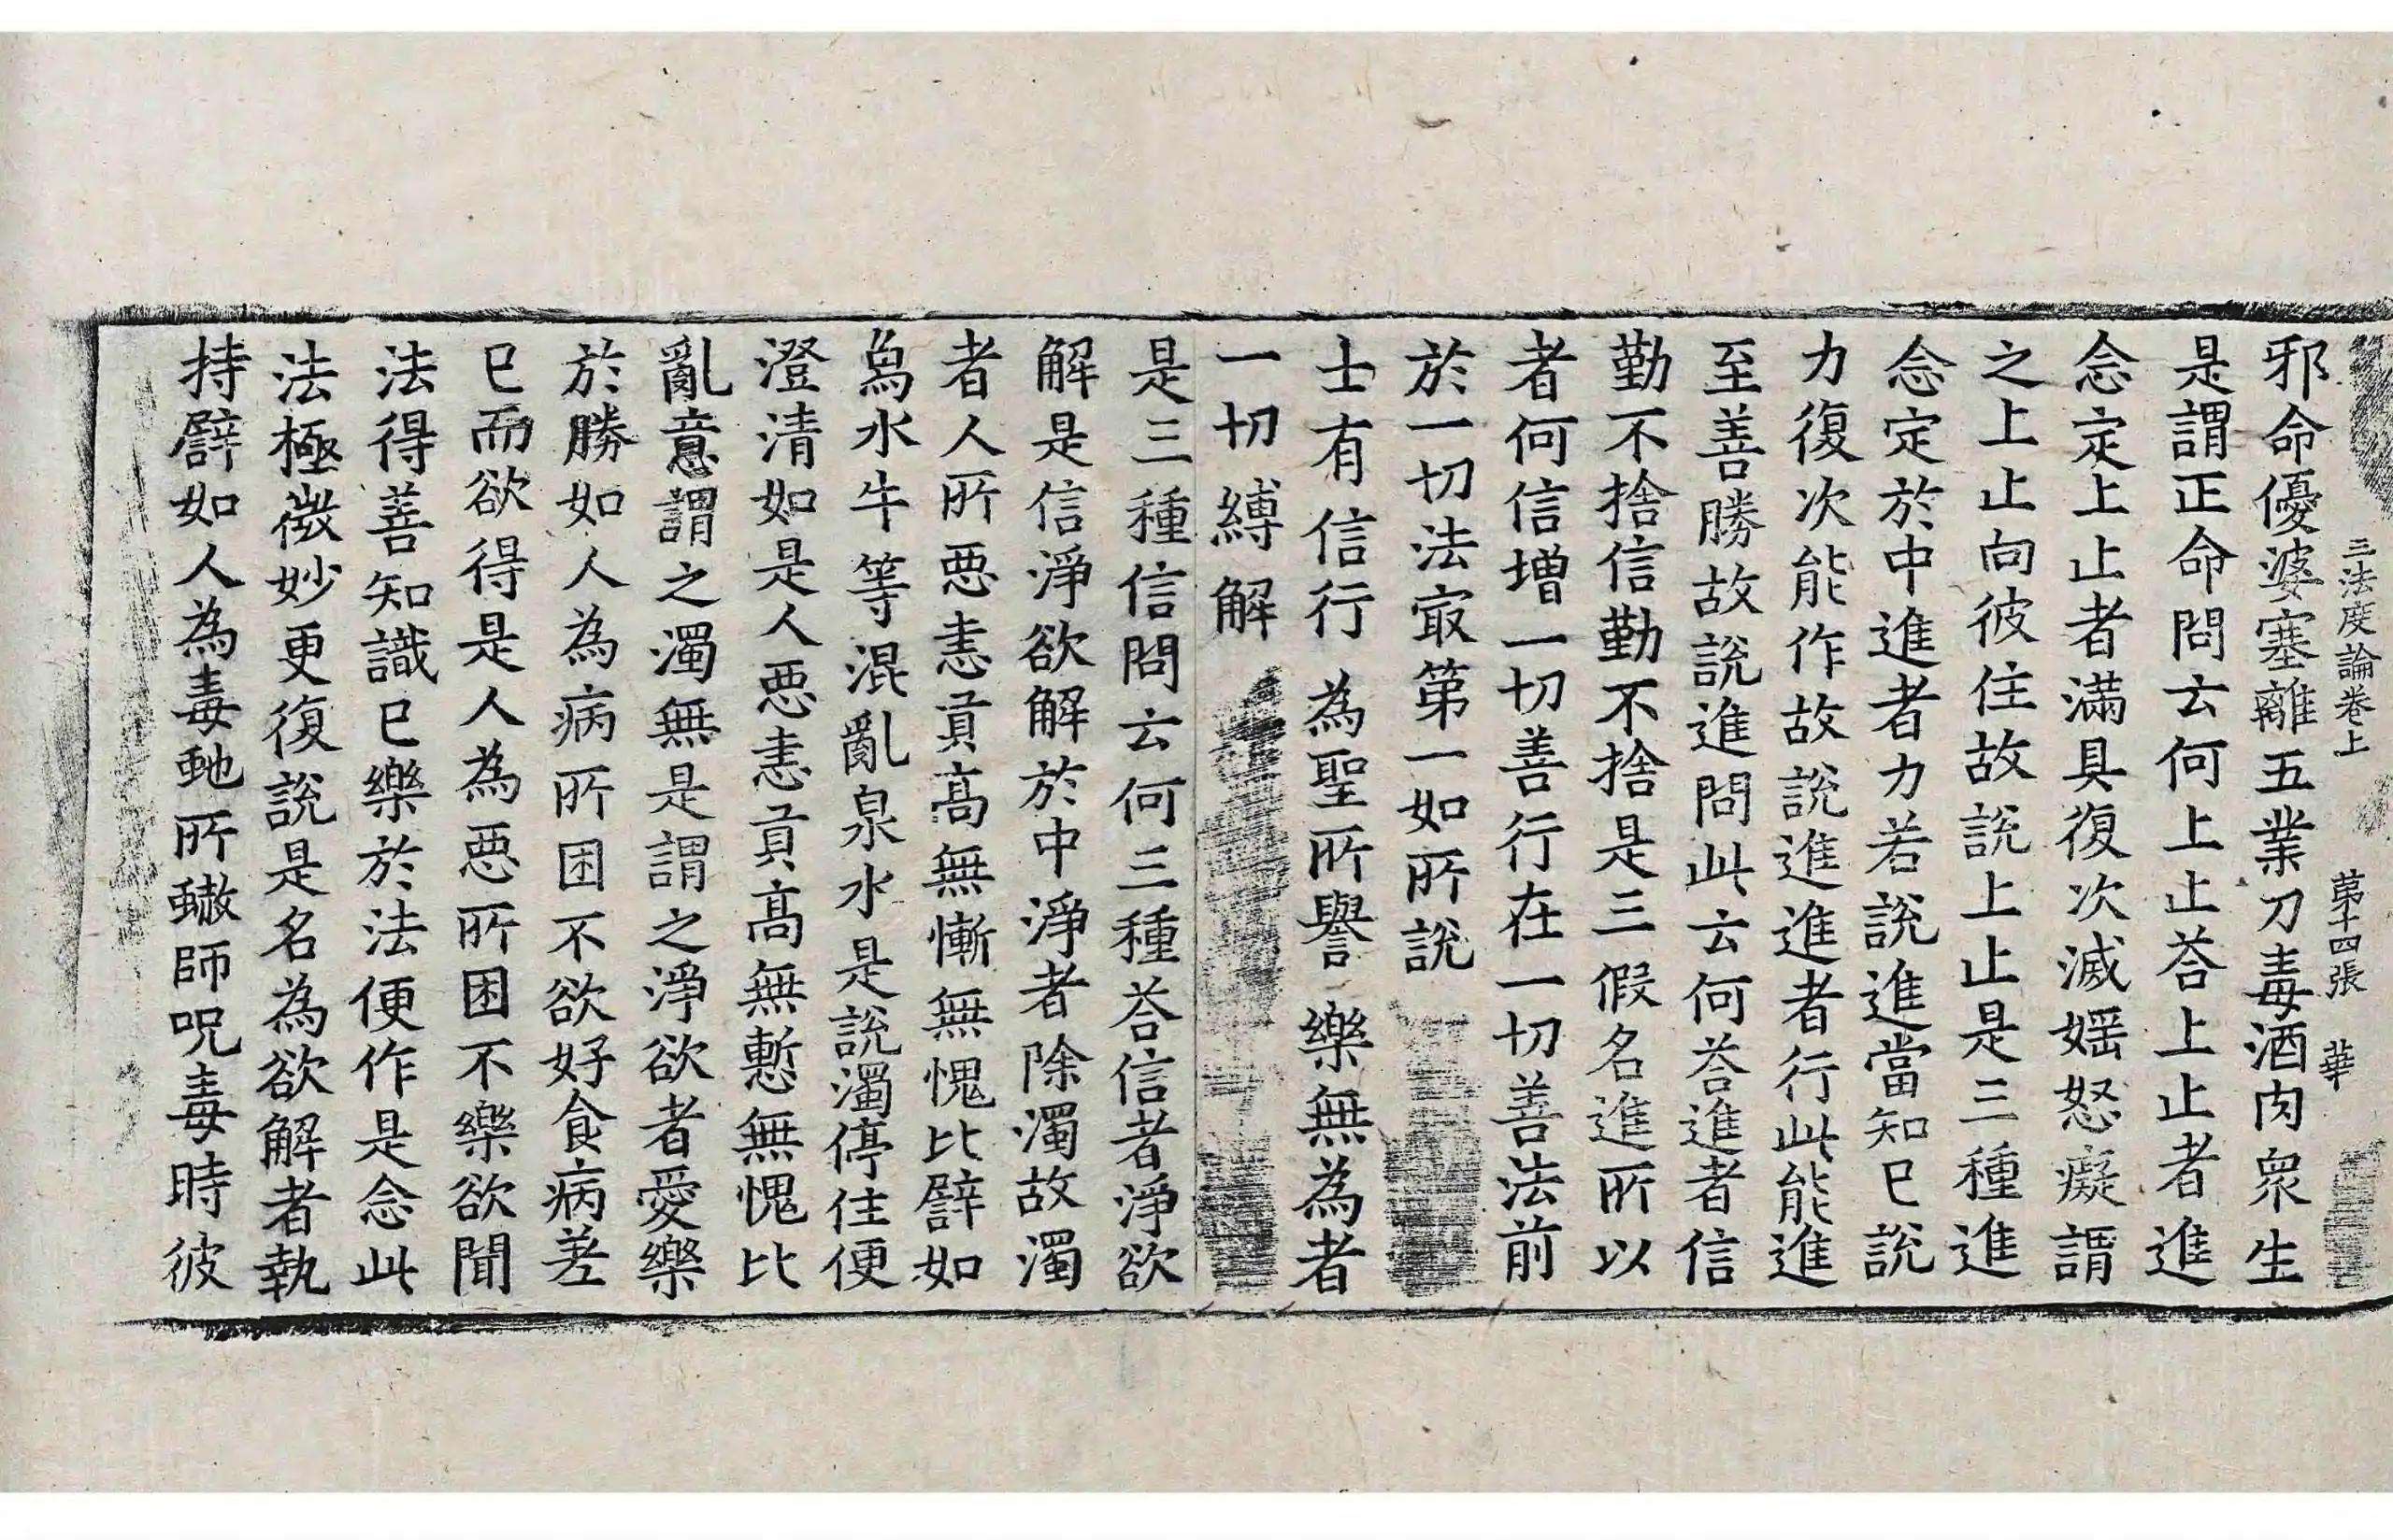 三法度論卷上 第十四張 華
邪命優婆塞離五業刀毒酒肉眾生
是謂正命問云何上止荅上止者進
念定上止者滿具復次滅婬怒癡謂
之上止向彼住故說上止是三種進
念定於中進者力若說進當知已說
力復次能作故說進進者行此能進
至善勝故說進問此云何荅進者信
勤不捨信勤不捨是三假名進所以
者何信增一切善行在一切善法前
於一切法㝡第一如所說
士有信行 為聖所譽 樂無為者
一切縛解
是三種信問云何三種荅信者淨欲
解是信淨欲解於中淨者除濁故濁
者人所惡恚貢高無慚無愧比譬如
象水牛等混亂泉水是說濁停住便
澄清如是人惡恚貢高無慙無愧比
亂意謂之濁無是謂之淨欲者愛樂
於勝如人為病所困不欲好食病差
已而欲得是人為惡所困不樂欲聞
法得善知識已樂於法便作是念此
法極微妙更復說是名為欲解者執
持譬如人為毒虵所螫師呪毒時彼